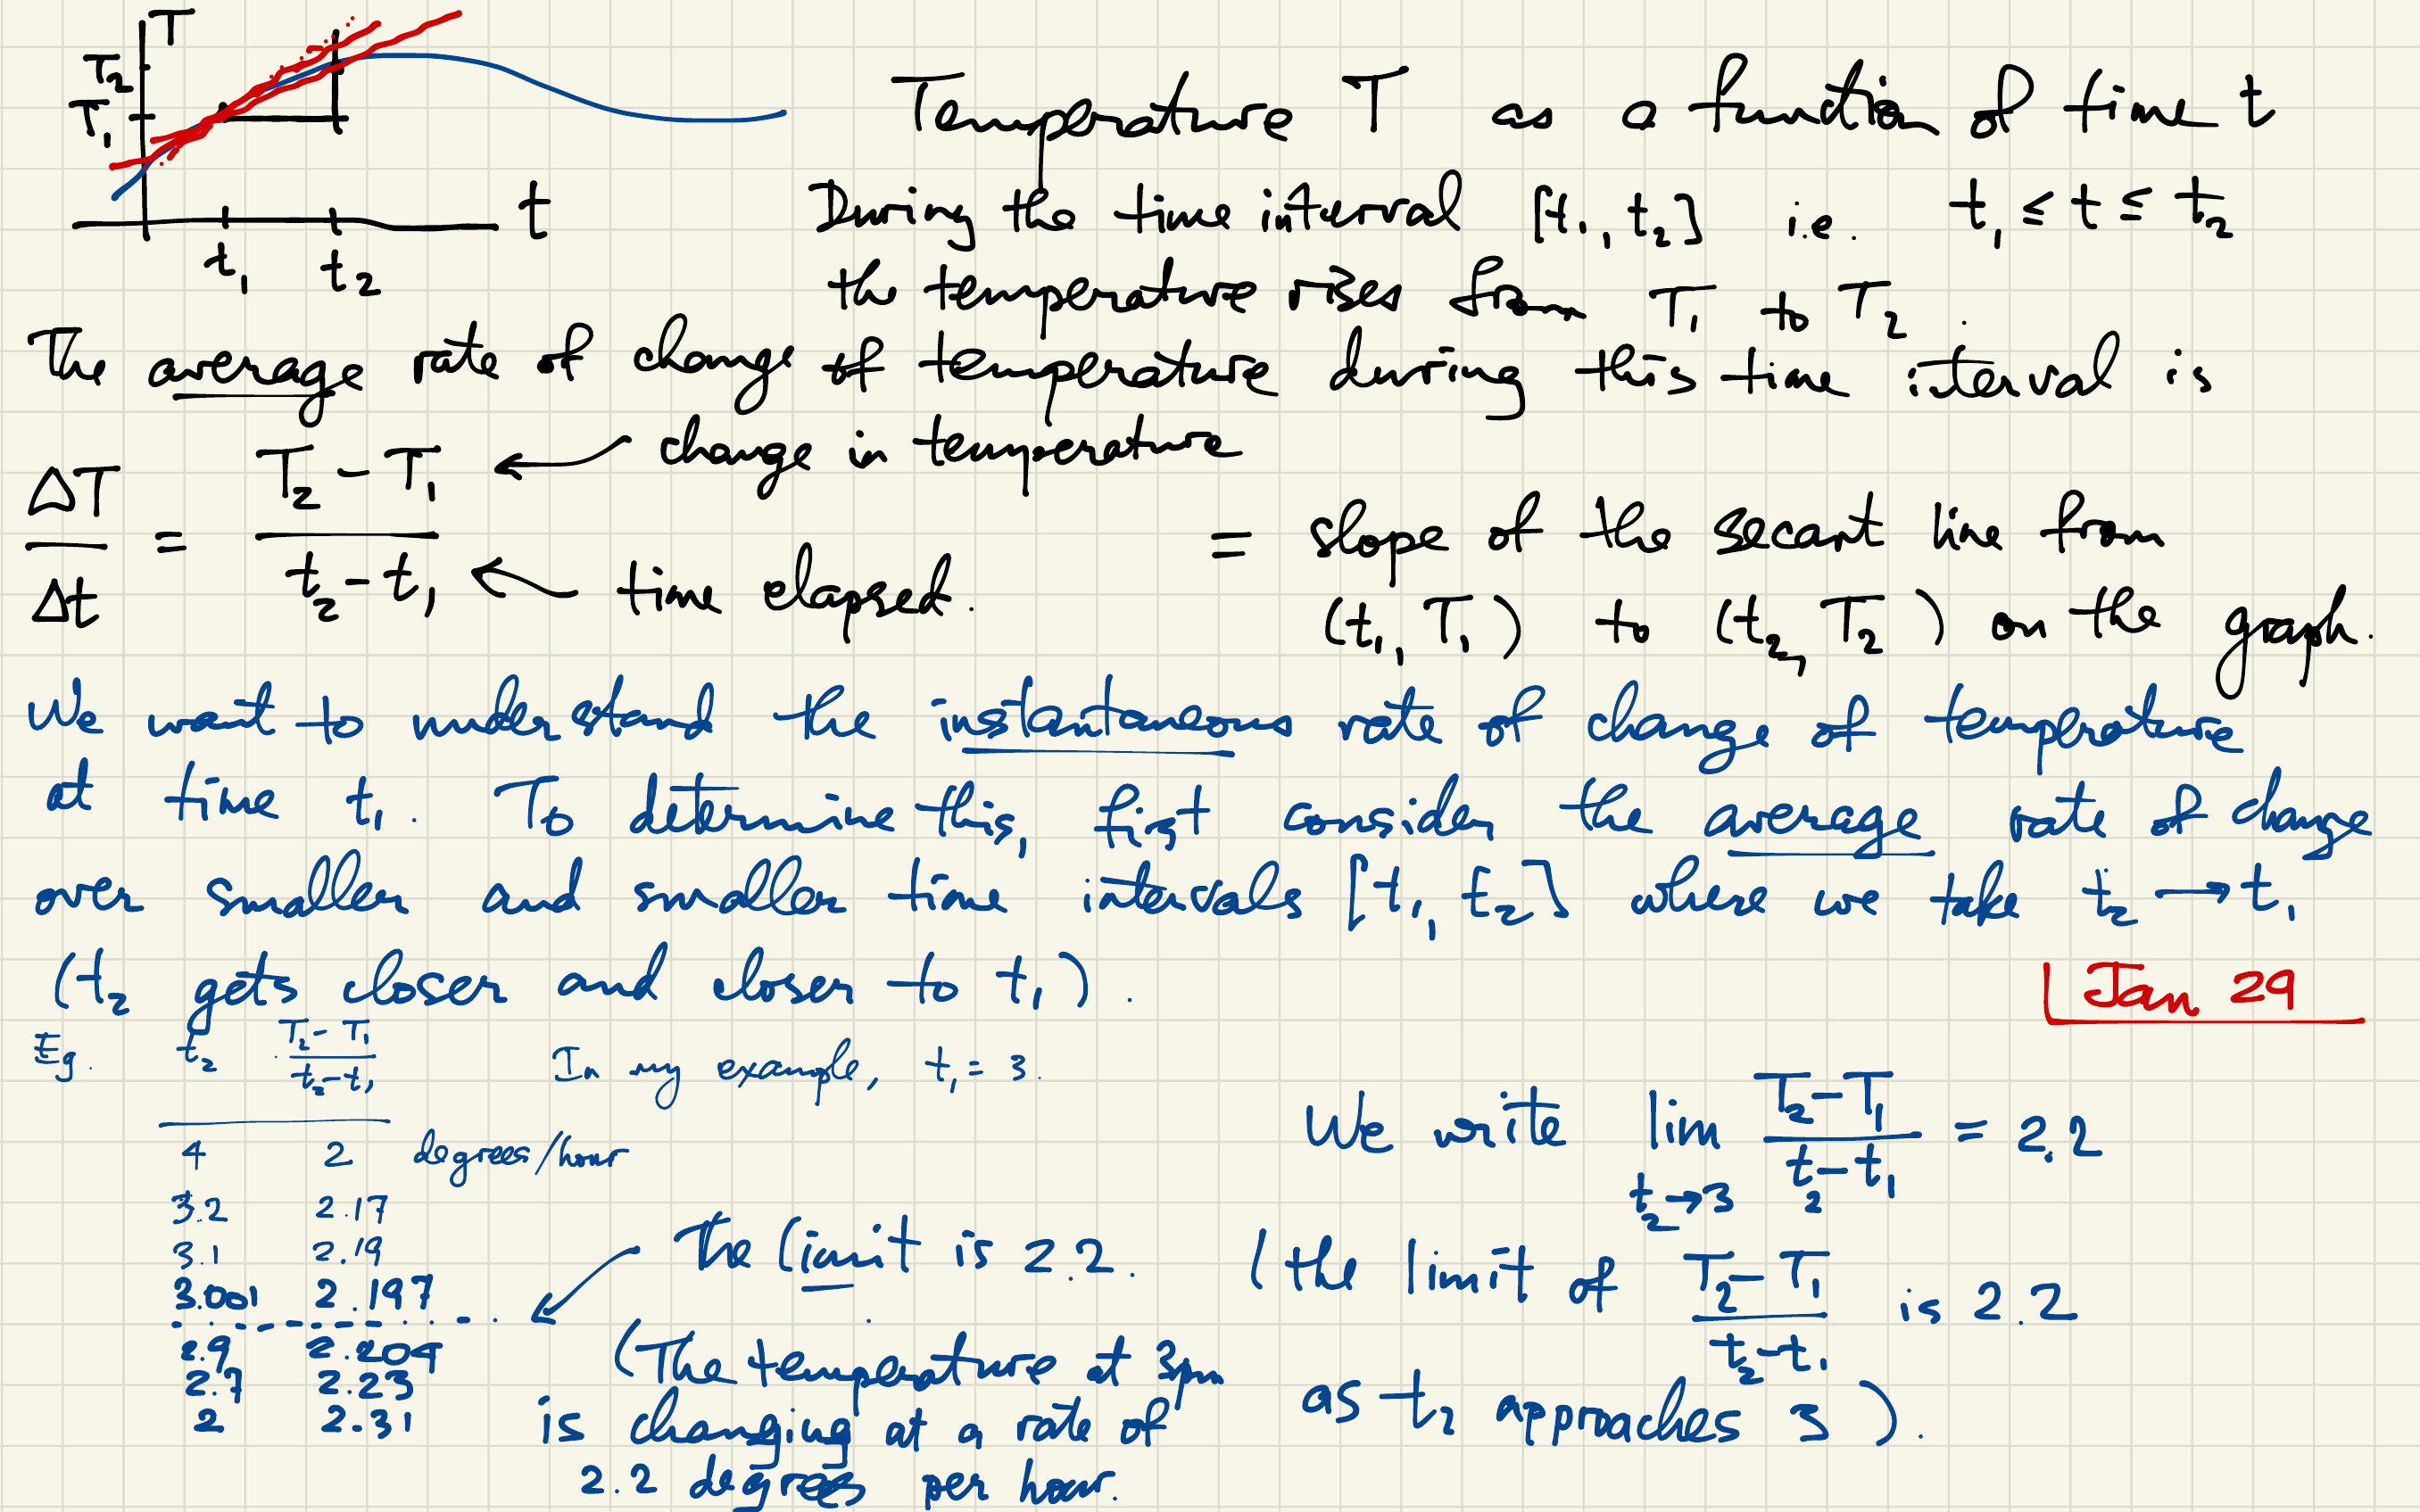 T
T₂
T₁
t
t₁ t₂
Temperature T as a function of time t
During the time interval [t₁, t₂] i.e. t₁ ≤ t ≤ t₂
the temperature rises from T₁ to T₂.
The average rate of change of temperature during this time interval is
ΔT/Δt = (T₂ - T₁)/(t₂ - t₁) ← change in temperature
← time elapsed.
= slope of the secant line from
(t₁, T₁) to (t₂, T₂) on the graph.
We want to understand the instantaneous rate of change of temperature
at time t₁. To determine this, first consider the average rate of change
over smaller and smaller time intervals [t₁, t₂] where we take t₂ → t₁
(t₂ gets closer and closer to t₁).
Jan 29
Eg. t₂ (T₂ - T₁)/(t₂ - t₁) In my example, t₁ = 3.
4 2 degrees/hour
3.2 2.17
3.1 2.19
3.001 2.197
2.9 2.204
2.7 2.23
2 2.31
The limit is 2.2.
(The temperature at 3pm
is changing at a rate of
2.2 degrees per hour.
We write lim t₂→3 (T₂ - T₁)/(t₂ - t₁) = 2.2
(the limit of (T₂ - T₁)/(t₂ - t₁) is 2.2
as t₂ approaches 3).